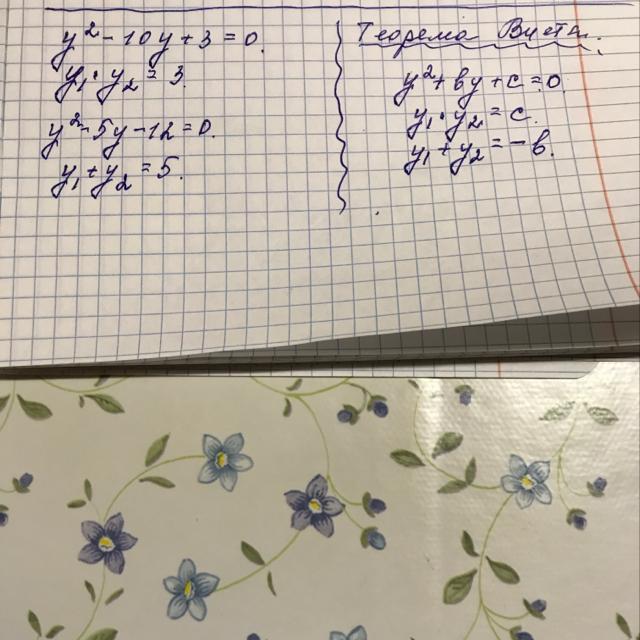 y² - 10y + 3 = 0.
y₁ · y₂ = 3.
y² - 5y - 12 = 0.
y₁ + y₂ = 5.
Теорема Виета.
y² + by + c = 0.
y₁ · y₂ = c.
y₁ + y₂ = -b.